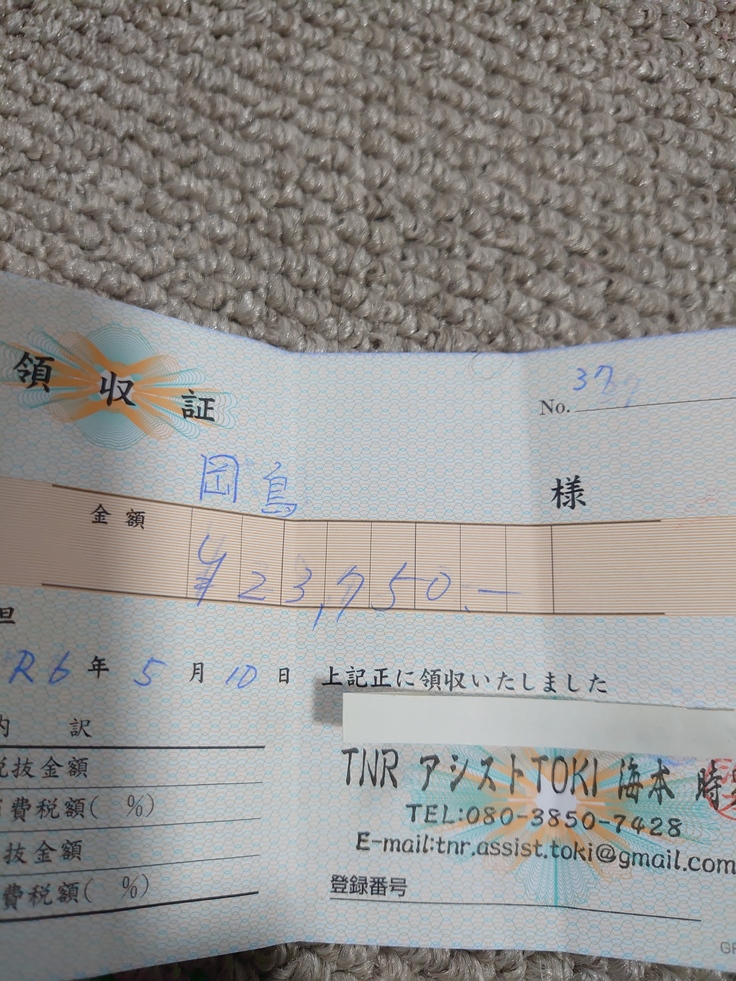 領収証
No. 37
岡島 様
金額 ¥23,750.-
R6年 5月 10日 上記正に領収いたしました
訳
税抜金額
費税額( %)
抜金額
費税額( %)
TNR アシストTOKI 海本 時
TEL:080-3850-7428
E-mail:tnr.assist.toki@gmail.com
登録番号